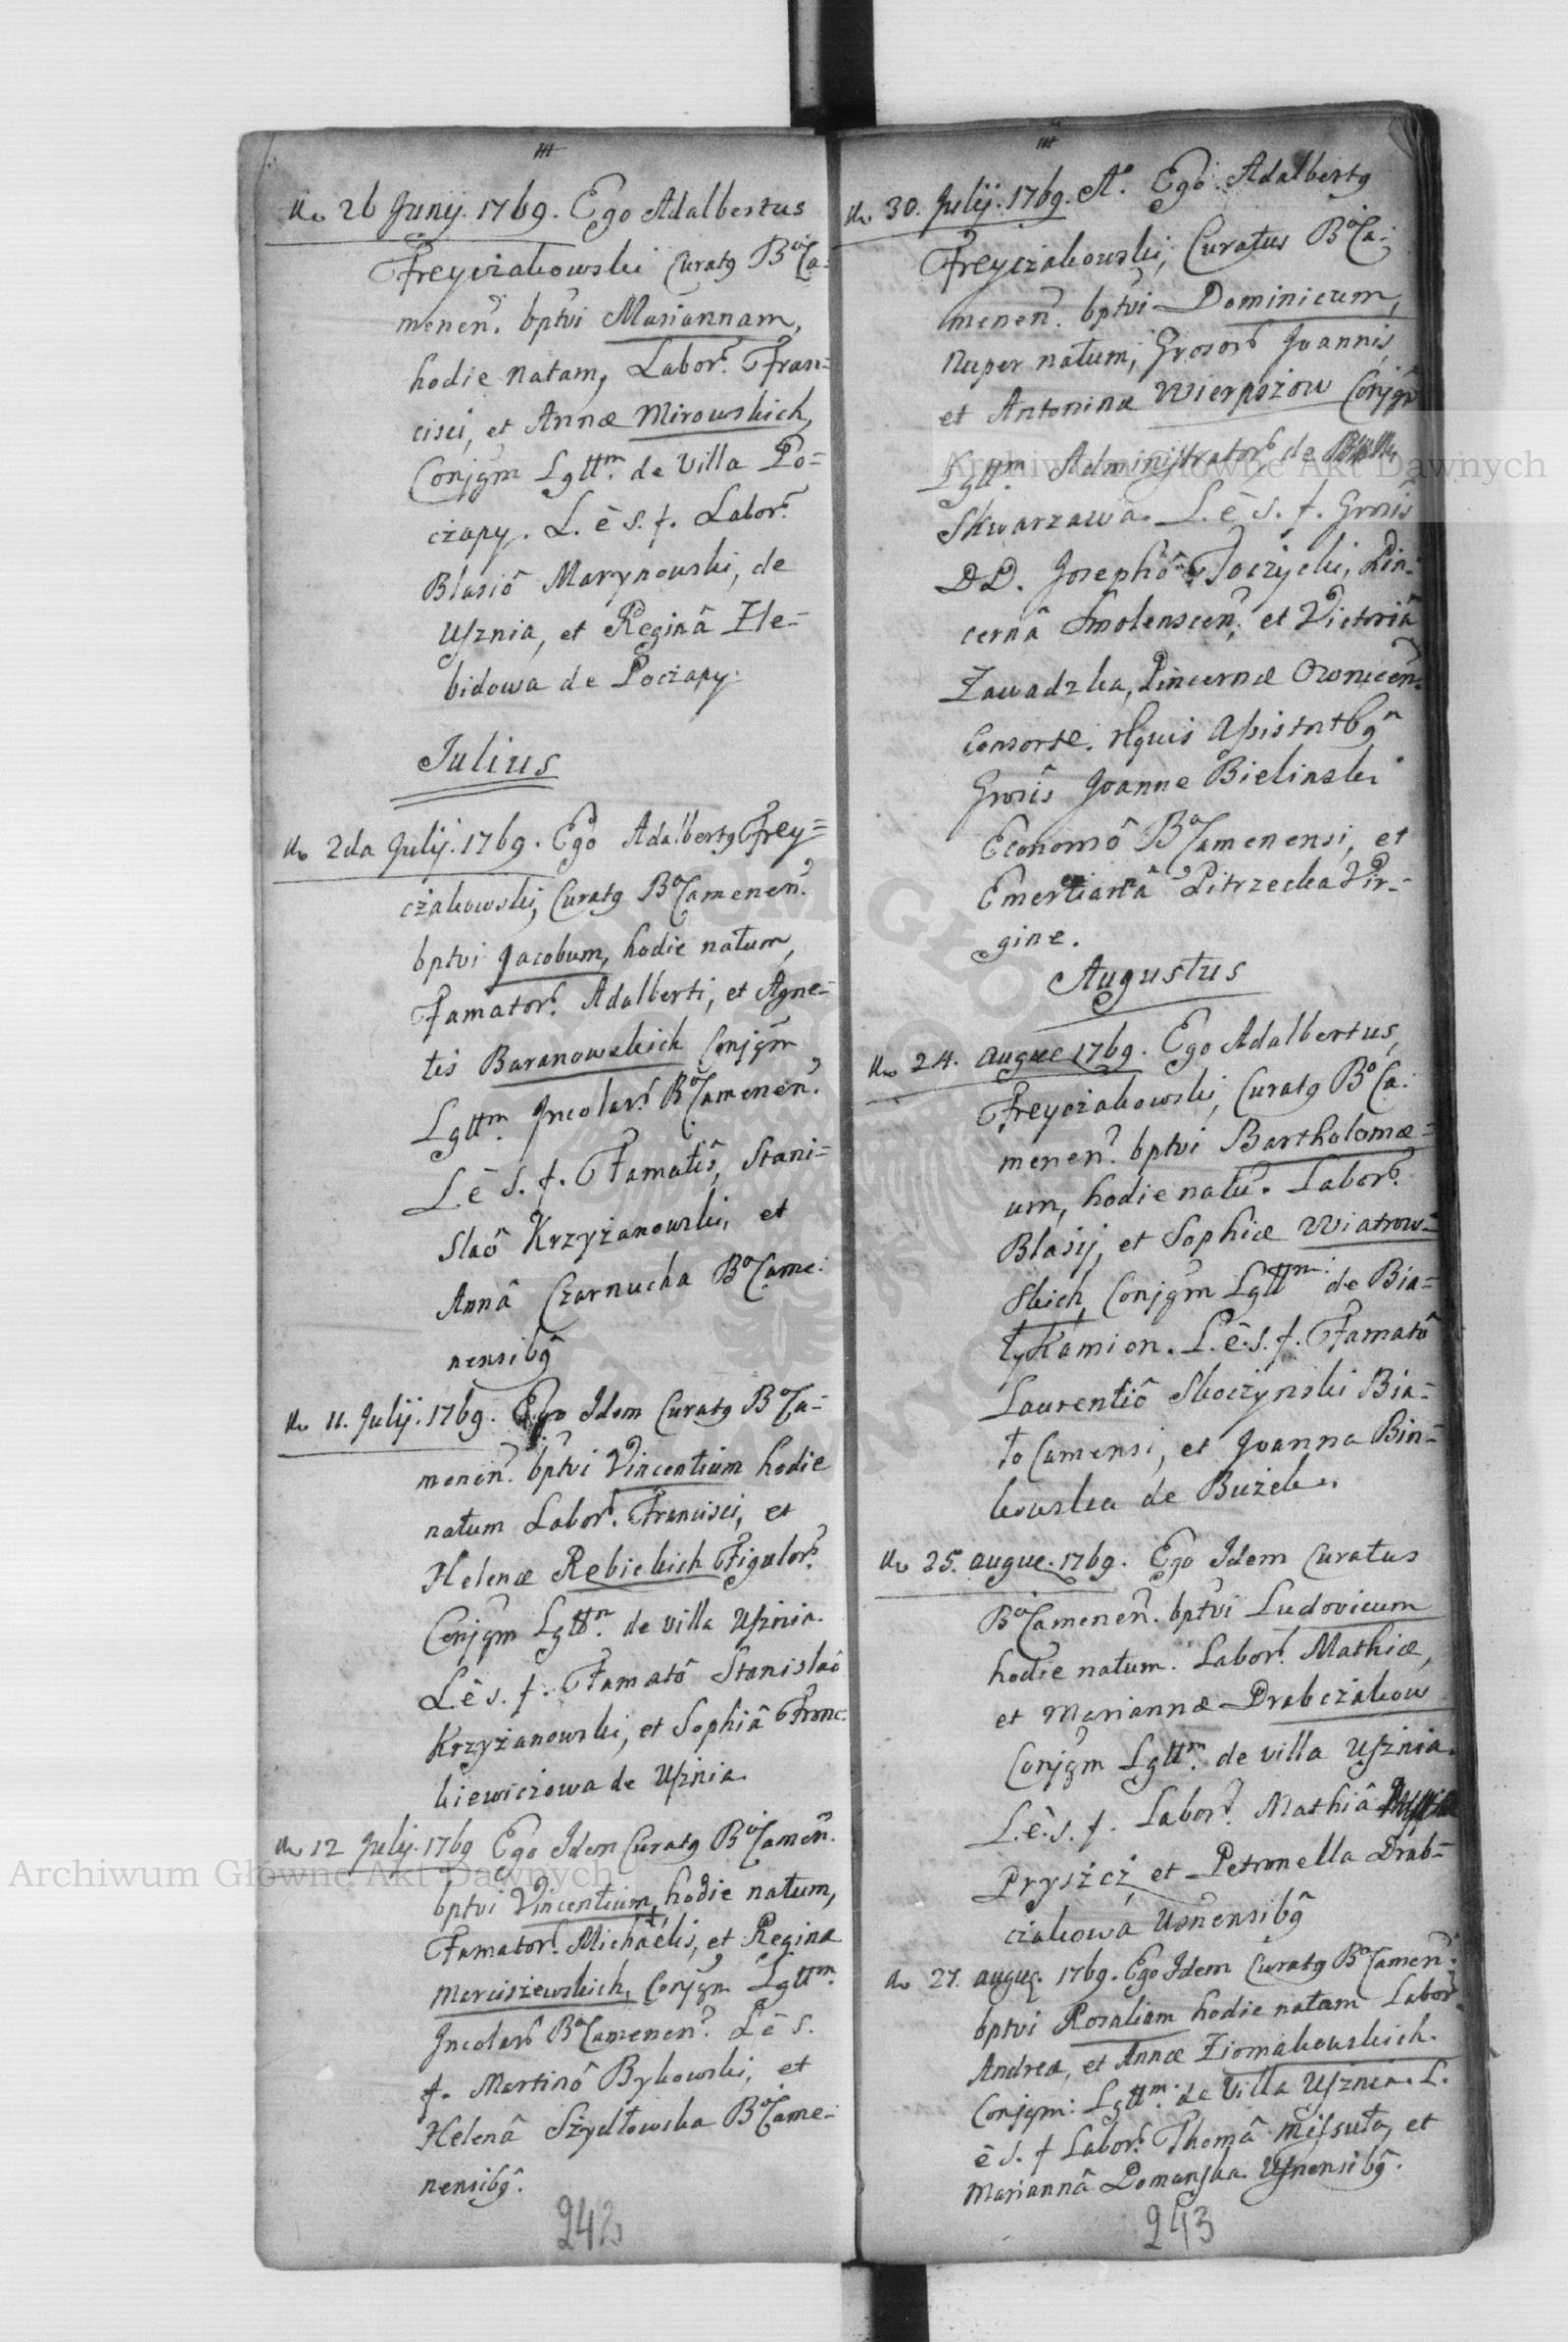 26 Junij. 1769. Ego Adalbertus
Freyczakowski Curatg BoCa-
menen. bptvi Mariannam,
hodie natam, Labor. Fran=
cisci, et Annæ Mirowskich,
Conjgm Lgttm. de Villa Po=
czapy. L. è s. f. Labor.
Blasiô Marynowski, de
Usznia, et Reginâ Zle=
bidowa de Poczapy.
Julius
2da Julij. 1769. Ego Adalbertg Frey=
czakowski, Curatg BoCamenen.
bptvi Jacobum, hodie natum,
Famator. Adalberti, et Agne=
tis Baranowskich Conjgm
Lgttm. Incolar. BoCamenen.
L. è s. f. Famatis, Stani=
slaô Krzyżanowski, et
Annâ Czarnucha BoCame:
nensibg
11. Julij. 1769. Ego Idem Curatg BoCa=
menen. bptvi Vincentium hodie
natum Labor. Francisci, et
Helenæ Rebickich Figulor.
Conjgm Lgttm. de villa Usznia.
L è s. f. Famatô Stanislaô
Krzyżanowski, et Sophiâ Franc:
kiewiczowa de Usznia.
12 Julij. 1769 Ego Idem Curatg BoCamen.
bptvi Vincentium, hodie natum,
Famator. Michaëlis, et Reginæ
Marciszewskich, Conjgm Lgttm.
Incolar. BoCamenen. L è s.
f. Martinô Bykowski, et
Helenâ Szydłowska BoCame-
nensibg.
242
30. Julij. 1769. Ao. Ego Adalbertg
Freyczakowski, Curatus BoCa:
menen. bptvi Dominicum,
nuper natum, Grosor. Joannis,
et Antoninæ Wierpszow Conjgm
Lgttm. Administrator. de
Skwarzawa. L. è s. f. Grosis
DD. Josephô Toczycki, Pin:
cernâ Smolenscen, et Victoriâ
Zawadzka, Pincernæ
Consorte. Assistntbg
Grosis Joanne Bielinski
Economô BoCamenensi, et
Pitrzecka Vir=
gine.
Augustus
24. auguc 1769. Ego Adalbertus,
Freyczakowski, Curatg BoCa:
menen. bptvi Bartholomæ=
um, hodie natū. Labor.
Blasij, et Sophiæ Wiatrow=
skich, Conjgm Lgttm. de Bia=
łykamion. L. è. s. f. Famatô
Laurentiô Skoczynski Bia=
ło Camensi, et Joanna Bin=
kowska de Bużek.
25. auguc. 1769. Ego Idem Curatus
BoCamenen. bptvi Ludovicum
hodie natum. Labor. Mathiæ,
et Mariannæ Drabczakow
Conjgm Lgttm. de villa Usznia.
L. è. s. f. Labor. Mathiâ
Pryszcz et Petronella Drab=
czakowa Usnensibg
27. auguc. 1769. Ego Idem Curatg BoCamen.
bptvi Rosaliam hodie natam Labor.
Andreæ, et Annæ Ziomakowskich.
Conjgm: Lgttm. de Villa Usznia. L.
è s. f Labor. Thomâ Missuta, et
Mariannâ Domanska Usnensibg.
243
Archiwum Główne Akt Dawnych
Archiwum Główne Akt Dawnych